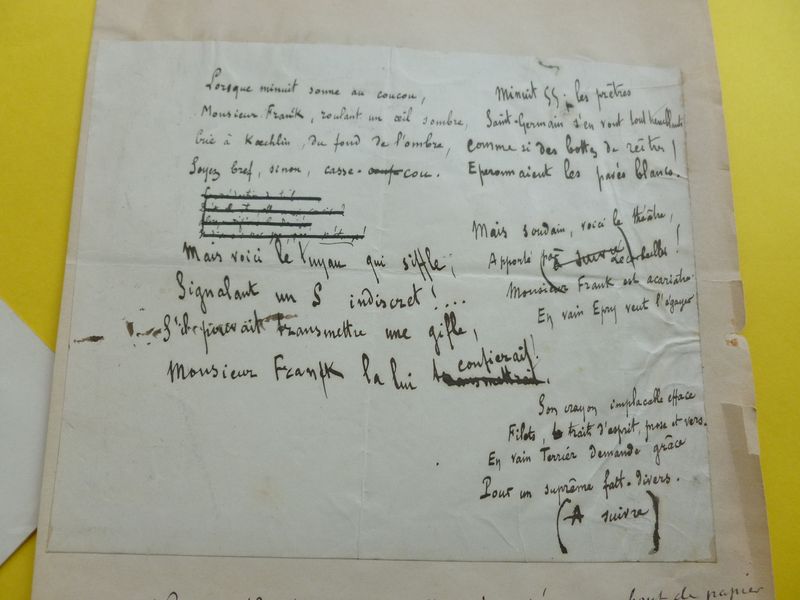 Lorsque minuit sonne au coucou,
Monsieur Franck, roulant un œil sombre,
Crie à Kœchlin, du fond de l'ombre,
Soyez bref, sinon, casse-cou.
Mais voici le tuyau qui siffle,
Signalant un S indiscret !...
S'il pouvait transmettre une gifle,
Monsieur Franck la lui confierait !
transmettrait.
Minuit 55 ; les prêtres
Saint-Germain s'en vont tout tremblants
comme si des bottes de reîtres !
Eperonnaient les pavés blancs.
Mais soudain, voici le théâtre,
Apporté par
(à suivre)
Monsieur Frank est acariâtre.
En vain Epry veut l'égayer
Son crayon implacable efface
Filets, trait d'esprit, prose et vers.
En vain Terrier demande grâce
Pour un suprême fait-divers.
(A suivre)
bout de papier